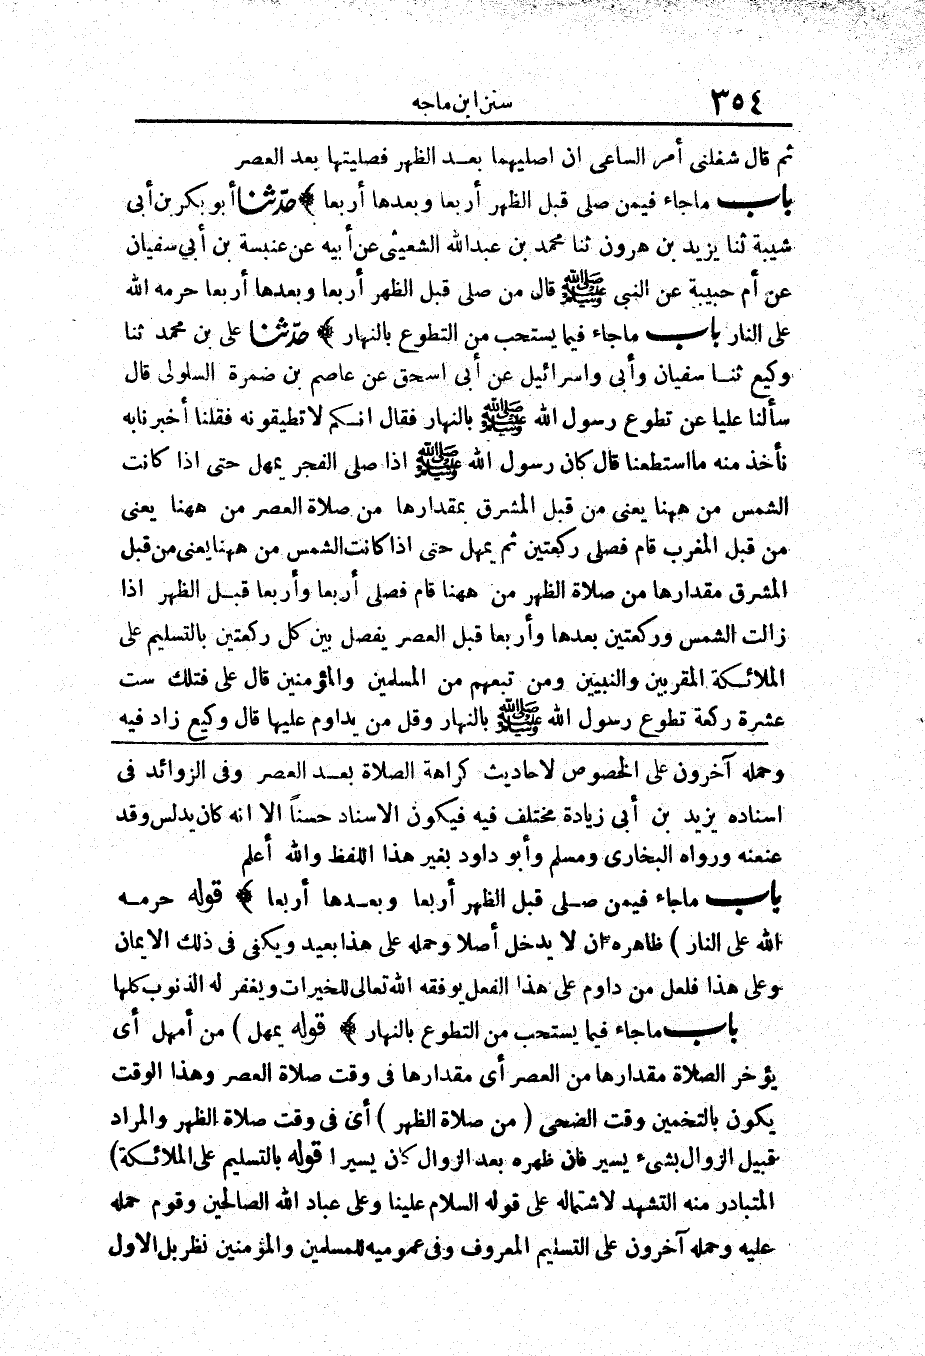 ٣٥٤
سنن ابن ماجه
ثم قال شغلنى أمر الساعى ان اصليهما بعد الظهر فصليتها بعد العصر
باب ماجاء فيمن صلى قبل الظهر أربعا وبعدها أربعا ﴾ حدّثنا أبو بكر بن أبى
شيبة ثنا يزيد بن هرون ثنا محمد بن عبدالله الشعيثى عن أبيه عن عنبسة بن أبي سفيان
عن أم حبيبة عن النبى ﷺ قال من صلى قبل الظهر أربعا وبعدها أربعا حرمه الله
على النار باب ماجاء فيما يستحب من التطوع بالنهار ﴾ حدّثنا على بن محمد ثنا
وكيع ثنا سفيان وأبى واسرائيل عن أبى اسحق عن عاصم بن ضمرة السلولى قال
سألنا عليا عن تطوع رسول الله ﷺ بالنهار فقال انكم لا تطيقونه فقلنا أخبرنا به
نأخذ منه ما استطعنا قال كان رسول الله ﷺ اذا صلى الفجر يمهل حتى اذا كانت
الشمس من ههنا يعنى من قبل المشرق بمقدارها من صلاة العصر من ههنا يعنى
من قبل المغرب قام فصلى ركعتين ثم يمهل حتى اذا كانت الشمس من ههنا يعنى من قبل
المشرق مقدارها من صلاة الظهر من ههنا قام فصلى أربعا وأربعا قبل الظهر اذا
زالت الشمس وركعتين بعدها وأربعا قبل العصر يفصل بين كل ركعتين بالتسليم على
الملائكة المقربين والنبيين ومن تبعهم من المسلمين والمؤمنين قال على فتلك ست
عشرة ركعة تطوع رسول الله ﷺ بالنهار وقل من يداوم عليها قال وكيع زاد فيه
وحمله آخرون على الخصوص لاحاديث كراهة الصلاة بعد العصر وفى الزوائد فى
اسناده يزيد بن أبى زيادة مختلف فيه فيكون الاسناد حسناً الا انه كان يدلس وقد
عنعنه ورواه البخارى ومسلم وأبو داود بغير هذا اللفظ والله أعلم
باب ماجاء فيمن صلى قبل الظهر أربعا وبعدها أربعا ﴾ قوله حرمه
الله على النار ) ظاهره ان لا يدخل أصلا وحمله على هذا بعيد ويكفى فى ذلك الايمان
وعلى هذا فلعل من داوم على هذا الفعل يوفقه الله تعالى للخيرات ويغفر له الذنوب كلها
باب ماجاء فيما يستحب من التطوع بالنهار ﴾ قوله يمهل ) من أمهل أى
يؤخر الصلاة مقدارها من العصر أى مقدارها فى وقت صلاة العصر وهذا الوقت
يكون بالتخمين وقت الضحى ( من صلاة الظهر ) أى فى وقت صلاة الظهر والمراد
قبيل الزوال بشىء يسير فان ظهره بعد الزوال كان يسيرا قوله بالتسليم على الملائكة)
المتبادر منه التشهد لاشتماله على قوله السلام علينا وعلى عباد الله الصالحين وقوم حمله
عليه وحمله آخرون على التسليم المعروف وفى عموميه للمسلمين والمؤمنين نظر بل الاول